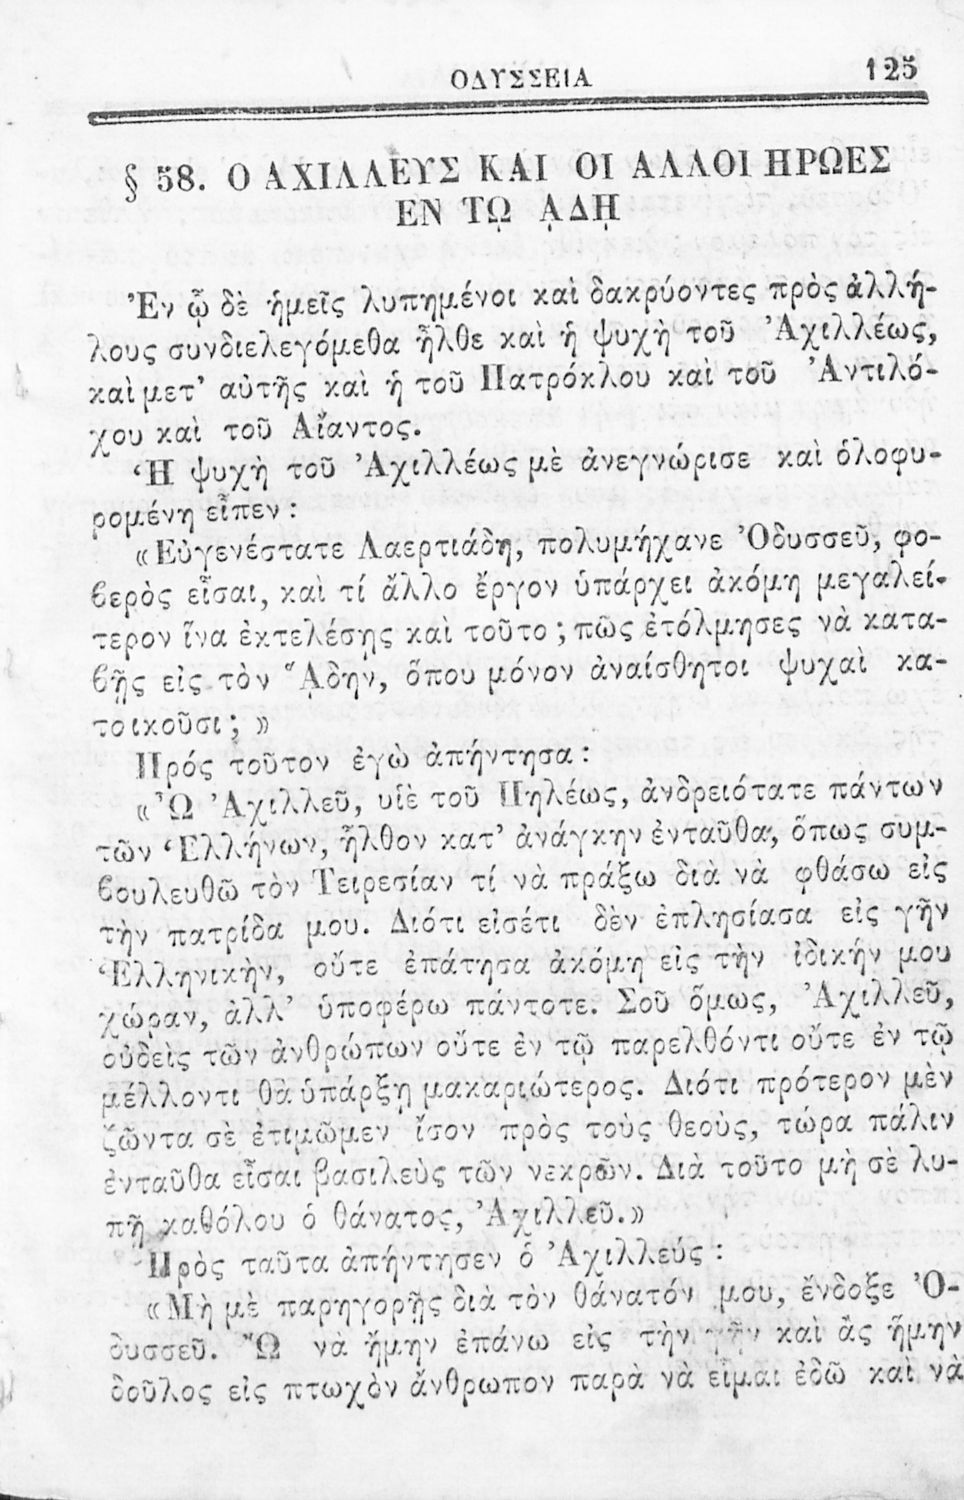 ΟΔΥΣΣΕΙΑ 125
§ 58. Ο ΑΧΙΛΛΕΥΣ ΚΑΙ ΟΙ ΑΛΛΟΙ ΗΡΩΕΣ
ΕΝ Τῼ ᾼΔῌ
Ἐν ᾧ δὲ ἡμεῖς λυπημένοι καὶ δακρύοντες πρὸς ἀλλή-
λους συνδιελεγόμεθα ἦλθε καὶ ἡ ψυχὴ τοῦ Ἀχιλλέως,
καὶ μετ’ αὐτῆς καὶ ἡ τοῦ Πατρόκλου καὶ τοῦ Ἀντιλό-
χου καὶ τοῦ Αἴαντος.
Ἡ ψυχὴ τοῦ Ἀχιλλέως μὲ ἀνεγνώρισε καὶ ὁλοφυ-
ρομένη εἶπεν :
«Εὐγενέστατε Λαερτιάδη, πολυμήχανε Ὀδυσσεῦ, φο-
βερὸς εἶσαι, καὶ τί ἄλλο ἔργον ὑπάρχει ἀκόμη μεγαλεί-
τερον ἵνα ἐκτελέσῃς καὶ τοῦτο ; πῶς ἐτόλμησες νὰ κατα-
βῇς εἰς τὸν Ἅδην, ὅπου μόνον ἀναίσθητοι ψυχαὶ κα-
τοικοῦσι ; »
Πρός τοῦτον ἐγὼ ἀπήντησα :
«Ὦ Ἀχιλλεῦ, υἱὲ τοῦ Πηλέως, ἀνδρειότατε πάντων
τῶν Ἑλλήνων, ἦλθον κατ’ ἀνάγκην ἐνταῦθα, ὅπως συμ-
βουλευθῶ τὸν Τειρεσίαν τί νὰ πράξω διὰ νὰ φθάσω εἰς
τὴν πατρίδα μου. Διότι εἰσέτι δὲν ἐπλησίασα εἰς γῆν
Ἑλληνικὴν, οὔτε ἐπάτησα ἀκόμη εἰς τὴν ἰδικήν μου
χώραν, ἀλλ’ ὑποφέρω πάντοτε. Σοῦ ὅμως, Ἀχιλλεῦ,
οὐδεὶς τῶν ἀνθρώπων οὔτε ἐν τῷ παρελθόντι οὔτε ἐν τῷ
μέλλοντι θὰ ὑπάρξῃ μακαριώτερος. Διότι πρότερον μὲν
ζῶντα σὲ ἐτιμῶμεν ἴσον πρὸς τοὺς θεοὺς, τώρα πάλιν
ἐνταῦθα εἶσαι βασιλεὺς τῶν νεκρῶν. Διὰ τοῦτο μὴ σὲ λυ-
πῇ καθόλου ὁ θάνατος, Ἀχιλλεῦ.»
Πρὸς ταῦτα ἀπήντησεν ὁ Ἀχιλλεύς :
«Μὴ μὲ παρηγορῇς διὰ τὸν θάνατόν μου, ἔνδοξε Ὀ-
δυσσεῦ. Ὢ νὰ ἤμην ἐπάνω εἰς τὴν γῆν καὶ ἂς ἤμην
δοῦλος εἰς πτωχὸν ἄνθρωπον παρὰ νὰ εἶμαι ἐδῶ καὶ νὰ